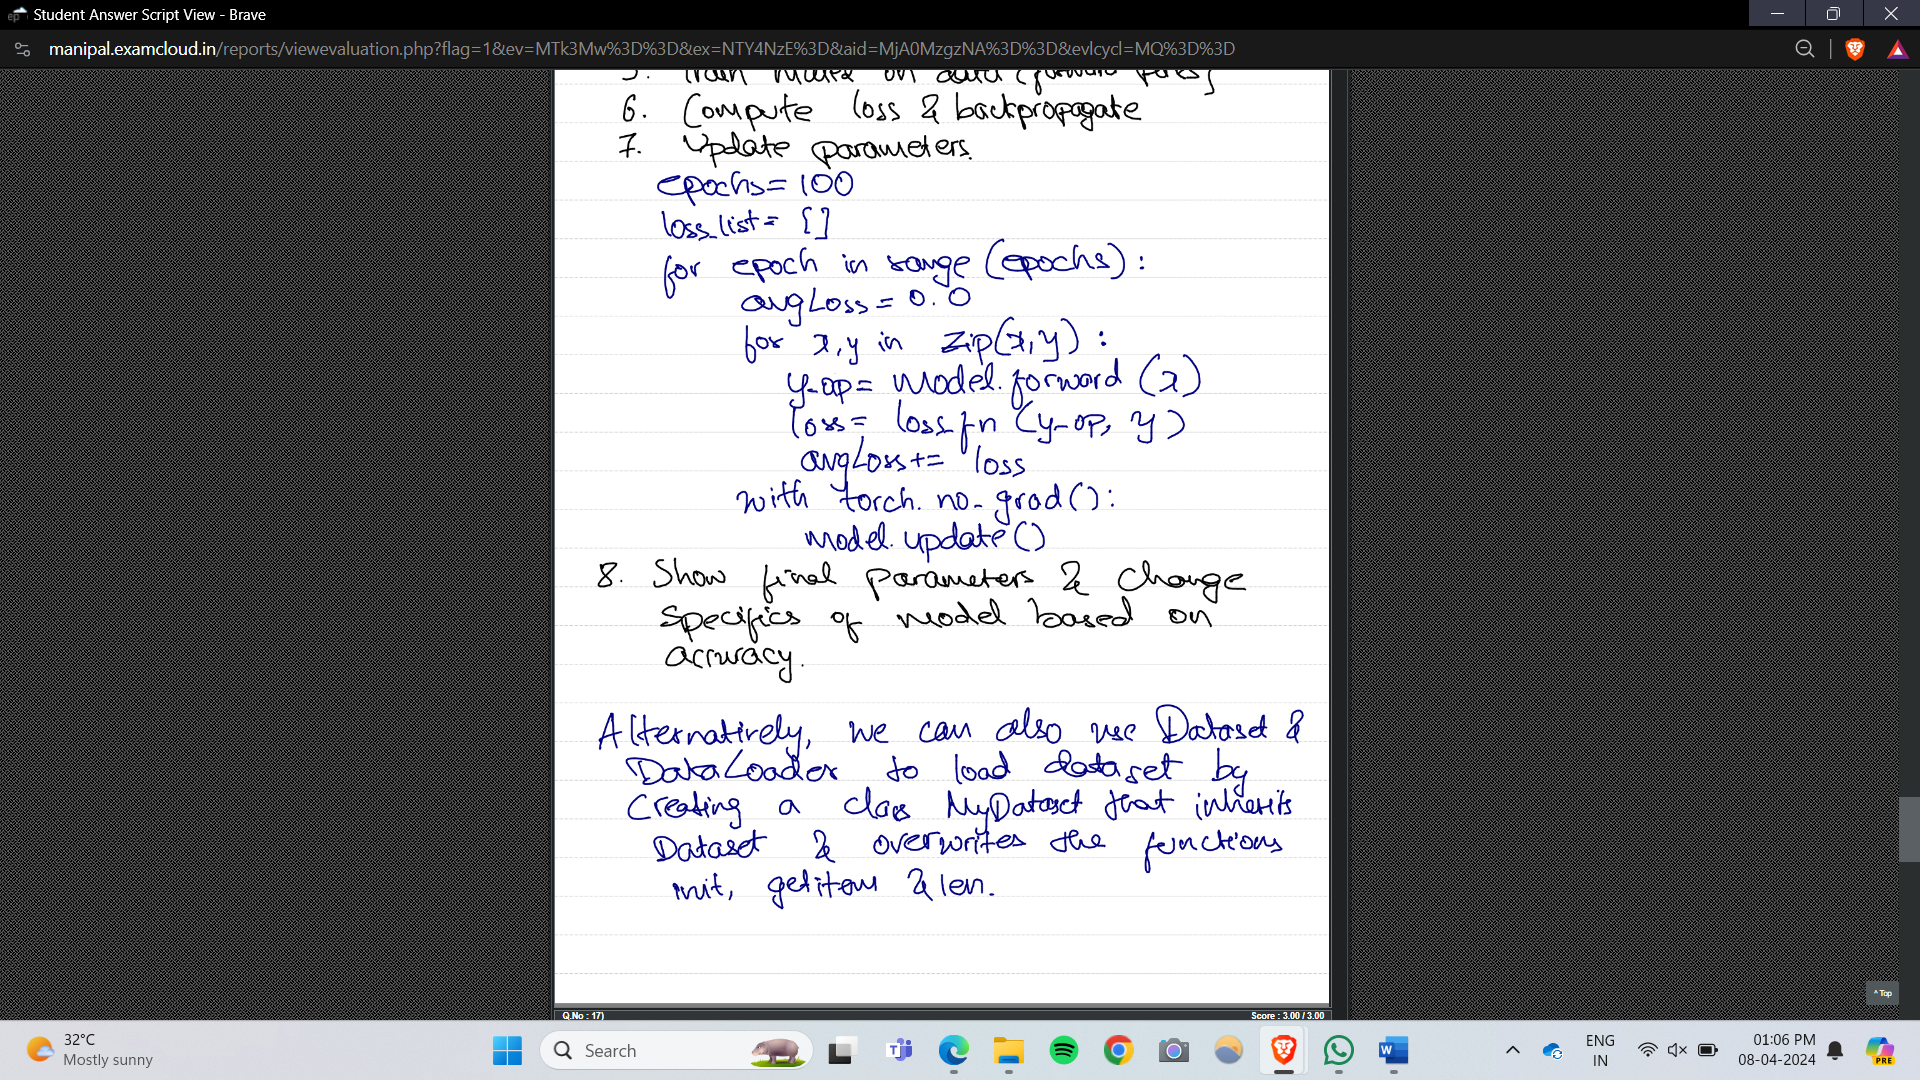 Student Answer Script View - Brave
manipal.examcloud.in/reports/viewevaluation.php?flag=1&ev=MTk3Mw%3D%3D&ex=NTY4NzE%3D&aid=MjA0MzgzNA%3D%3D&evlcycl=MQ%3D%3D
5. Train model on data (forward pass)
6. Compute loss & backpropagate
7. Update parameters.
epochs = 100
loss_list = []
for epoch in range (epochs) :
avgLoss = 0.0
for x,y in zip(x,y) :
y_op = model.forward (x)
loss = loss_fn (y_op, y)
avgLoss += loss
with torch.no_grad():
model.update()
8. Show final parameters & change
specifics of model based on
accuracy.
Alternatively, we can also use Dataset &
DataLoader to load dataset by
Creating a class MyDataset that inherits
Dataset & overwrites the functions
init, getitem & len.
^ Top
Q.No : 17) Score : 3.00 / 3.00
32°C
Mostly sunny
Search
ENG
IN
01:06 PM
08-04-2024
PRE